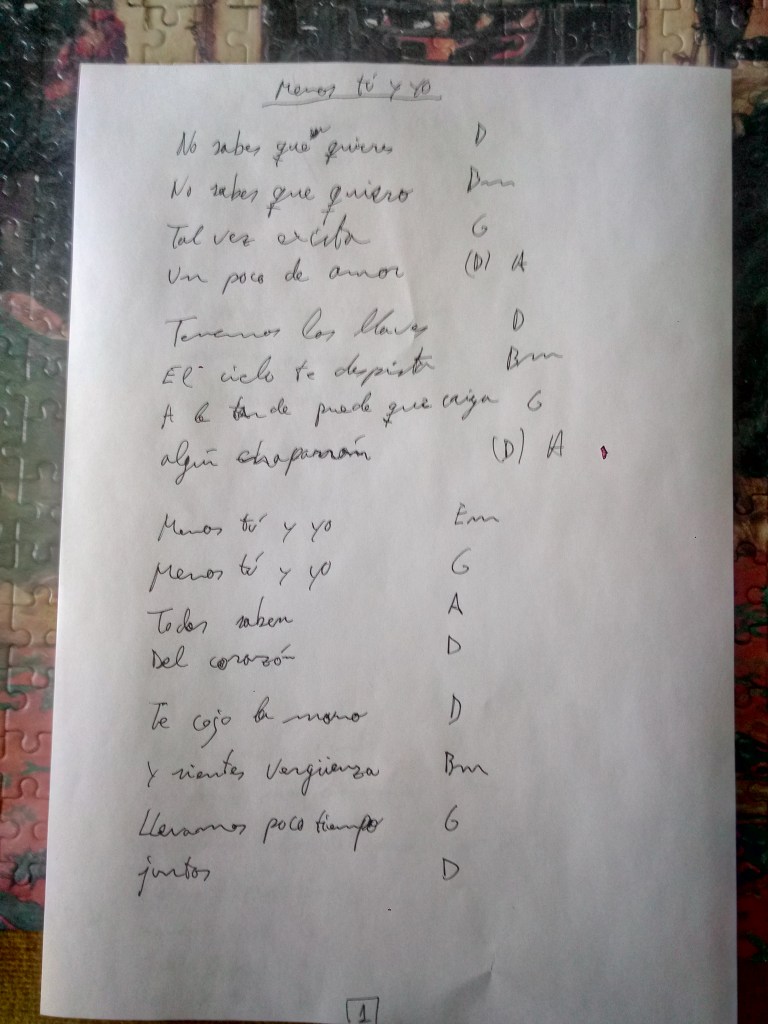 Menos tú y yo
No sabes que quieres D
No sabes que quiero Bm
Tal vez exista G
Un poco de amor (D) A
Tenemos las llaves D
El cielo te despista Bm
A la tarde puede que caiga G
algún chaparrón (D) A
Menos tú y yo Em
Menos tú y yo G
Todos saben A
Del corazón D
Te cojo la mano D
Y sientes vergüenza Bm
Llevamos poco tiempo G
juntos D
1